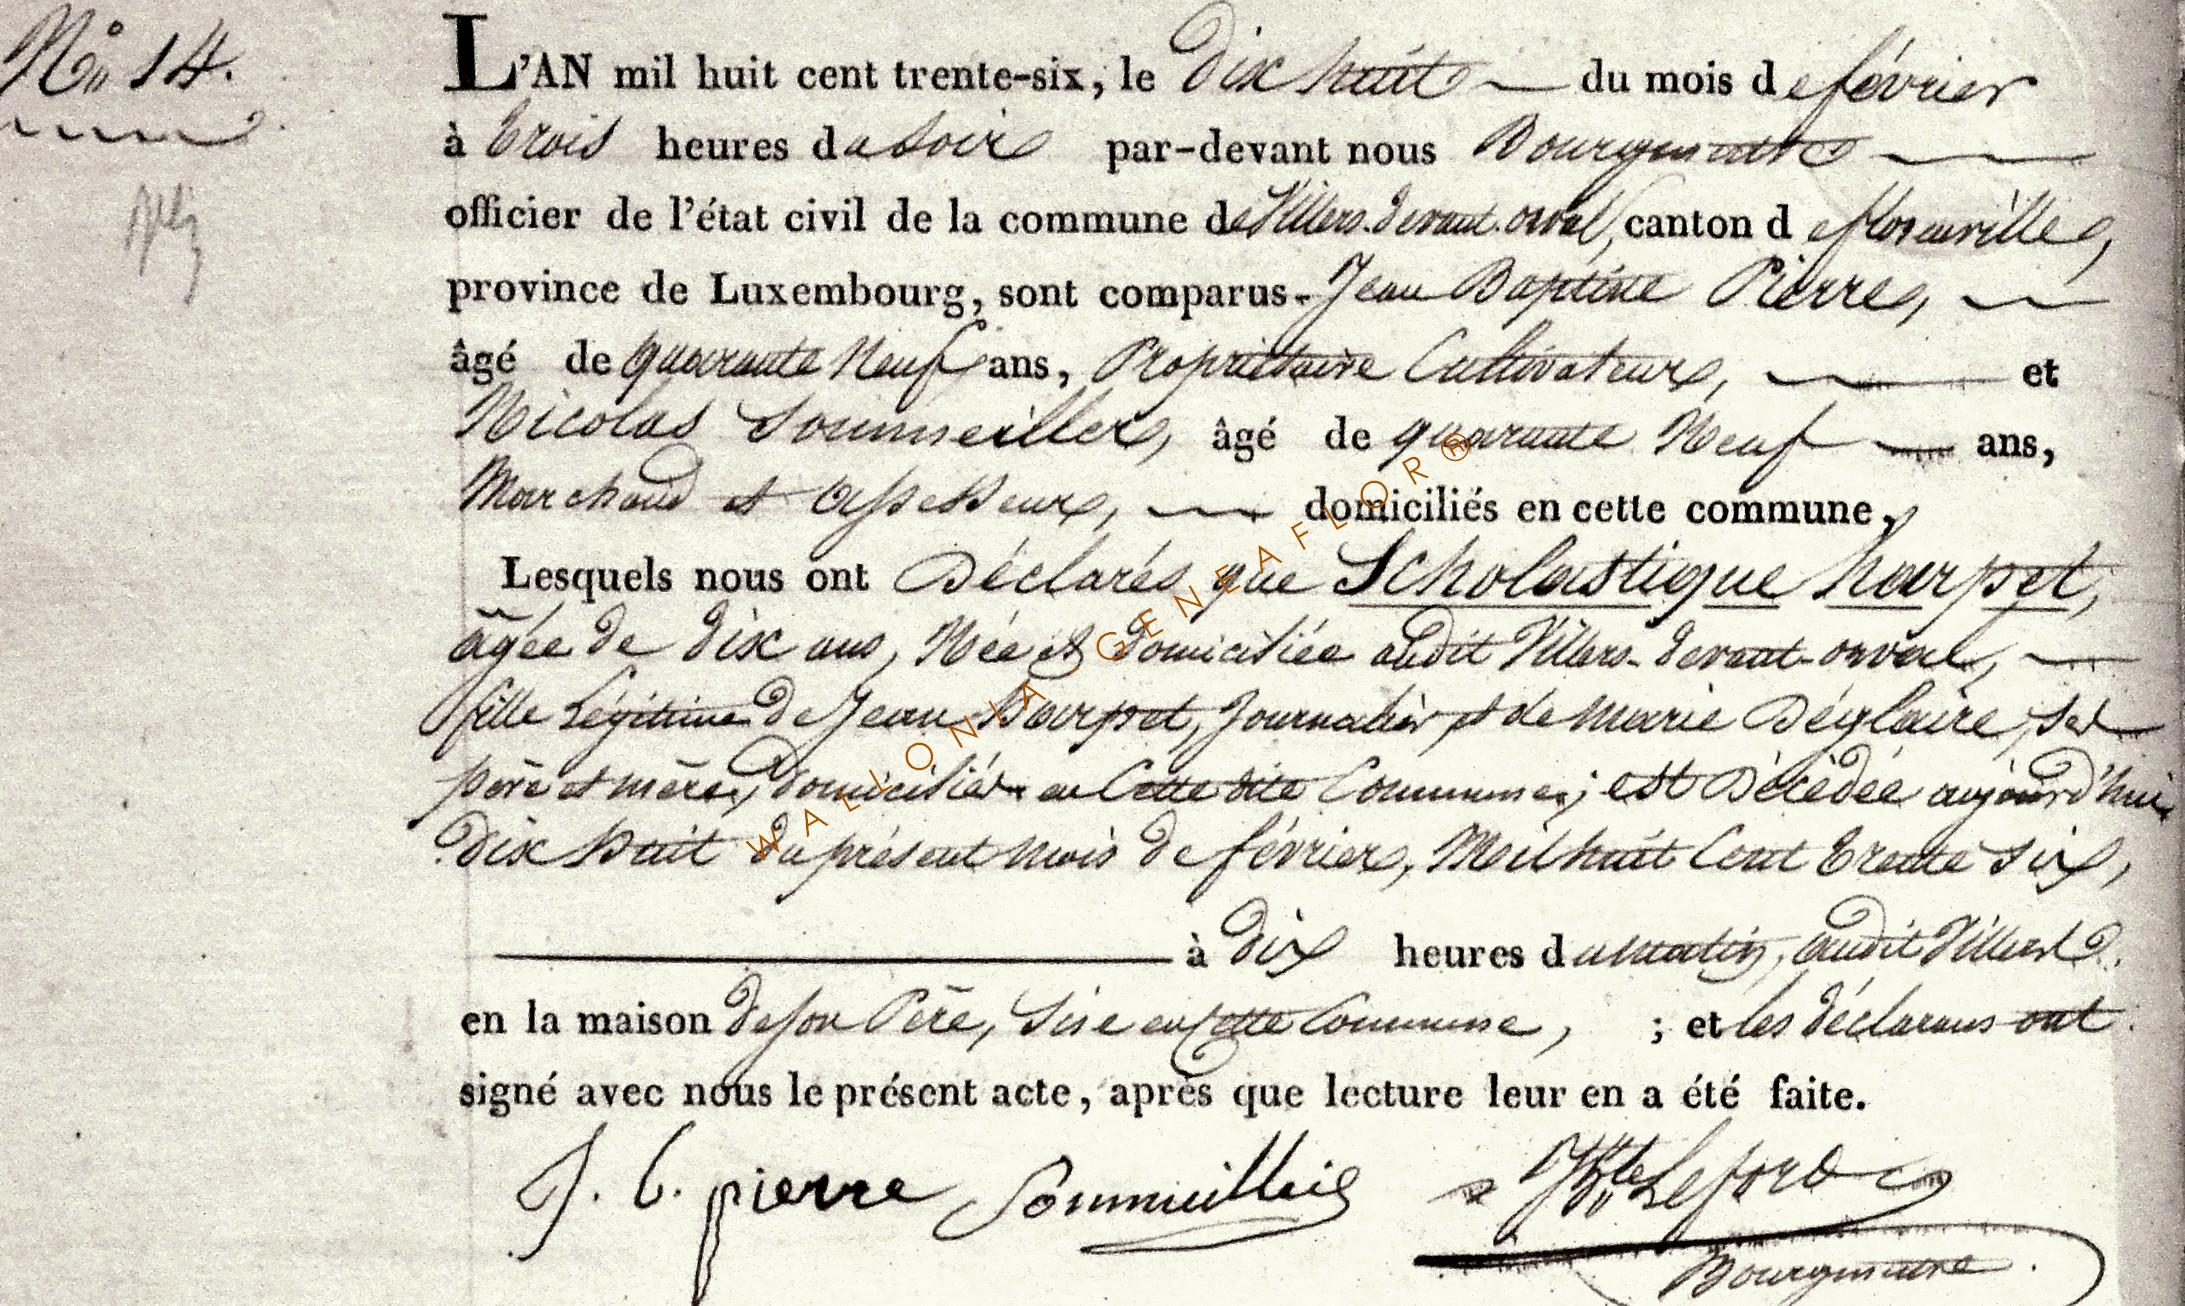 No 14.
L'AN mil huit cent trente-six, le dix huit du mois de février
à trois heures du soir par-devant nous Bourgmestre
officier de l'état civil de la commune de Villers-devant-orval, canton de florenville,
province de Luxembourg, sont comparus Jean Baptiste Pierre,
âgé de quarante Neuf ans, Propriétaire Cultivateur, et
Nicolas Sommeiller, âgé de quarante Neuf ans,
Marchand et Assesseur, domiciliés en cette commune,
Lesquels nous ont Déclarés que Scholastique harpet,
âgée de dix ans, Née et domiciliée audit Villers-devant-orval,
fille Légitime de Jean harpet, Journalier et de Marie Déglaire, ses
père et mère, domiciliés en Cette dite Commune; est Décédée aujourd'hui
dix huit du présent mois de février, Mil huit Cent trente six,
à dix heures du matin, audit Villers
en la maison de son Père, Sise en cette Commune, ; et les déclarans ont
signé avec nous le présent acte, après que lecture leur en a été faite.
J. b. pierre Sommeillier JBte Leford
Bourgmestre
WALLONIA GENEAFLOR®